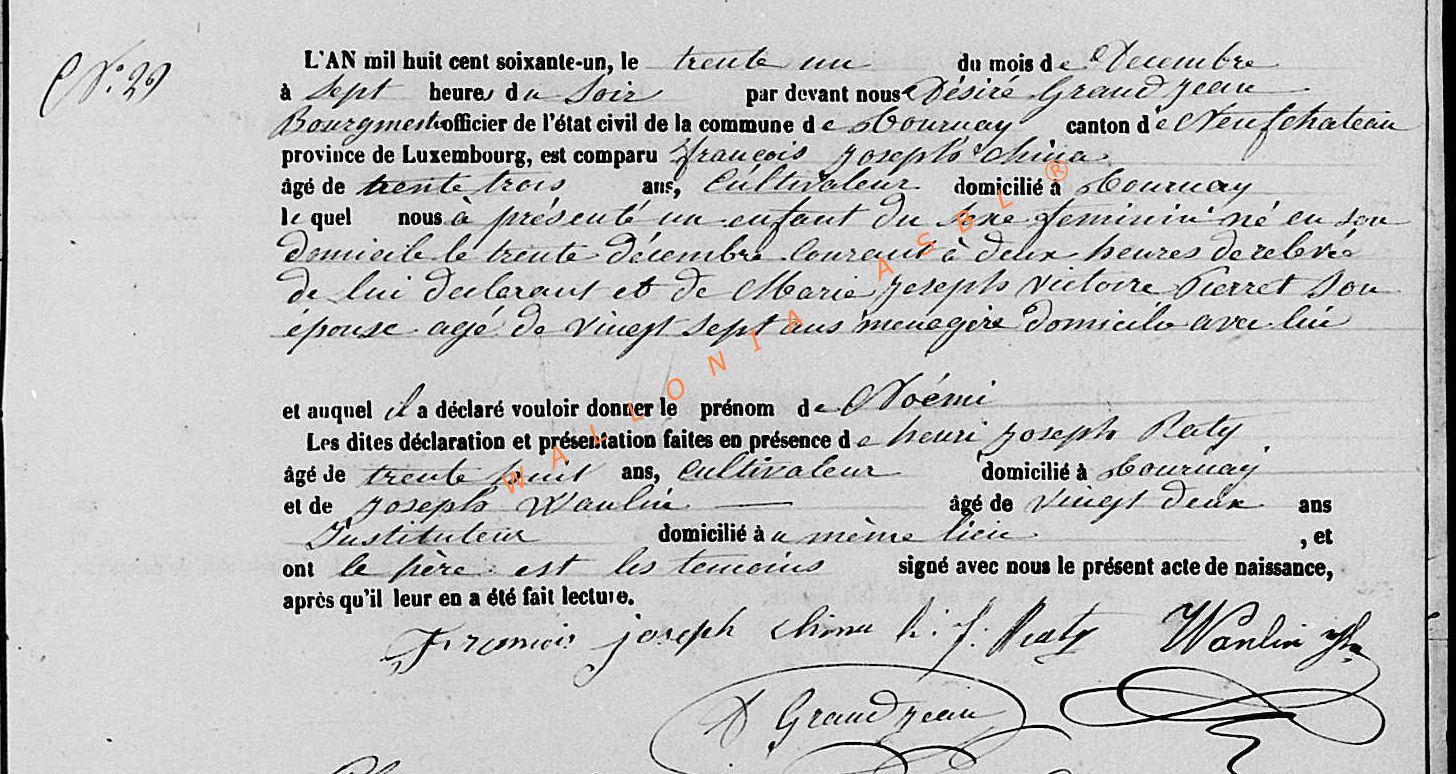 N° 29
L'AN mil huit cent soixante-un, le trente un du mois de Décembre
à Sept heures du Soir par devant nous Désiré Grandjean
Bourgmestre officier de l'état civil de la commune de Tournay canton de Neufchateau
province de Luxembourg, est comparu françois joseph china
âgé de trente trois ans, Cultivateur domicilié à Tournay
le quel nous à présenté un enfant du sexe feminin né en son
domicile le trente décembre Courant à deux heures de relevée
de lui declarant et de Marie joseph victoire Pierret Son
épouse agé de vingt sept ans menagère domicile avec lui
et auquel il a déclaré vouloir donner le prénom de Noémi
Les dites déclaration et présentation faites en présence de henri joseph Raty
âgé de trente huit ans, Cultivateur domicilié à Tournay
et de joseph Wanlin âgé de vingt deux ans
Instituteur domicilié à u même lieu , et
ont le père est les temoins signé avec nous le présent acte de naissance,
après qu'il leur en a été fait lecture.
joseph h. j. Raty Wanlin Jh
D Grandjean
WALLONIA ASBL ®